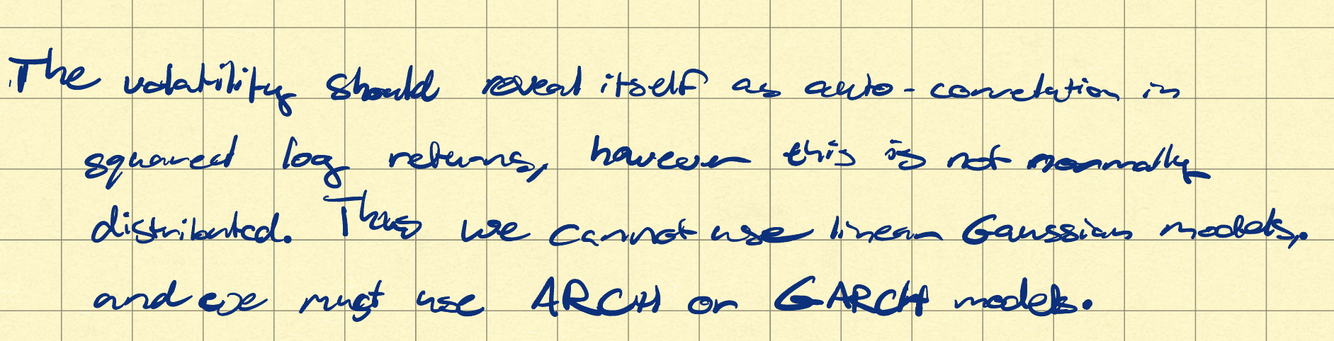 The volatility should reveal itself as auto-correlation in
squared log returns, however this is not normally
distributed. Thus we cannot use linear Gaussian models,
and we must use ARCH or GARCH models.